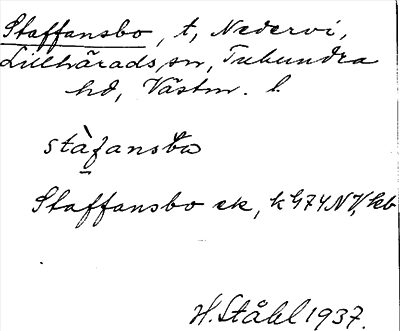 Staffansbo, t, Nedervi,
Lillhärads sn, Tuhundra
hd, Västm. l.
stàfansbω
Staffansbo ek, k G74NV, kb
H. Ståhl 1937.